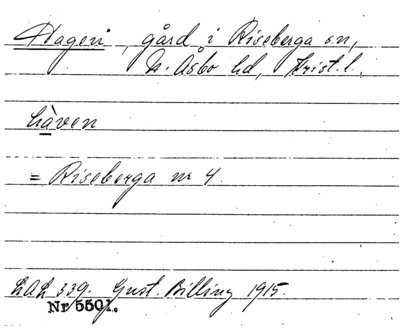 Hagen, gård i Riseberga sn,
N. Åsbo hd, Krist. l.,
hàven
= Riseberga nr 4.
LAL 339. Gust. Billing 1915.
Nr 5501.